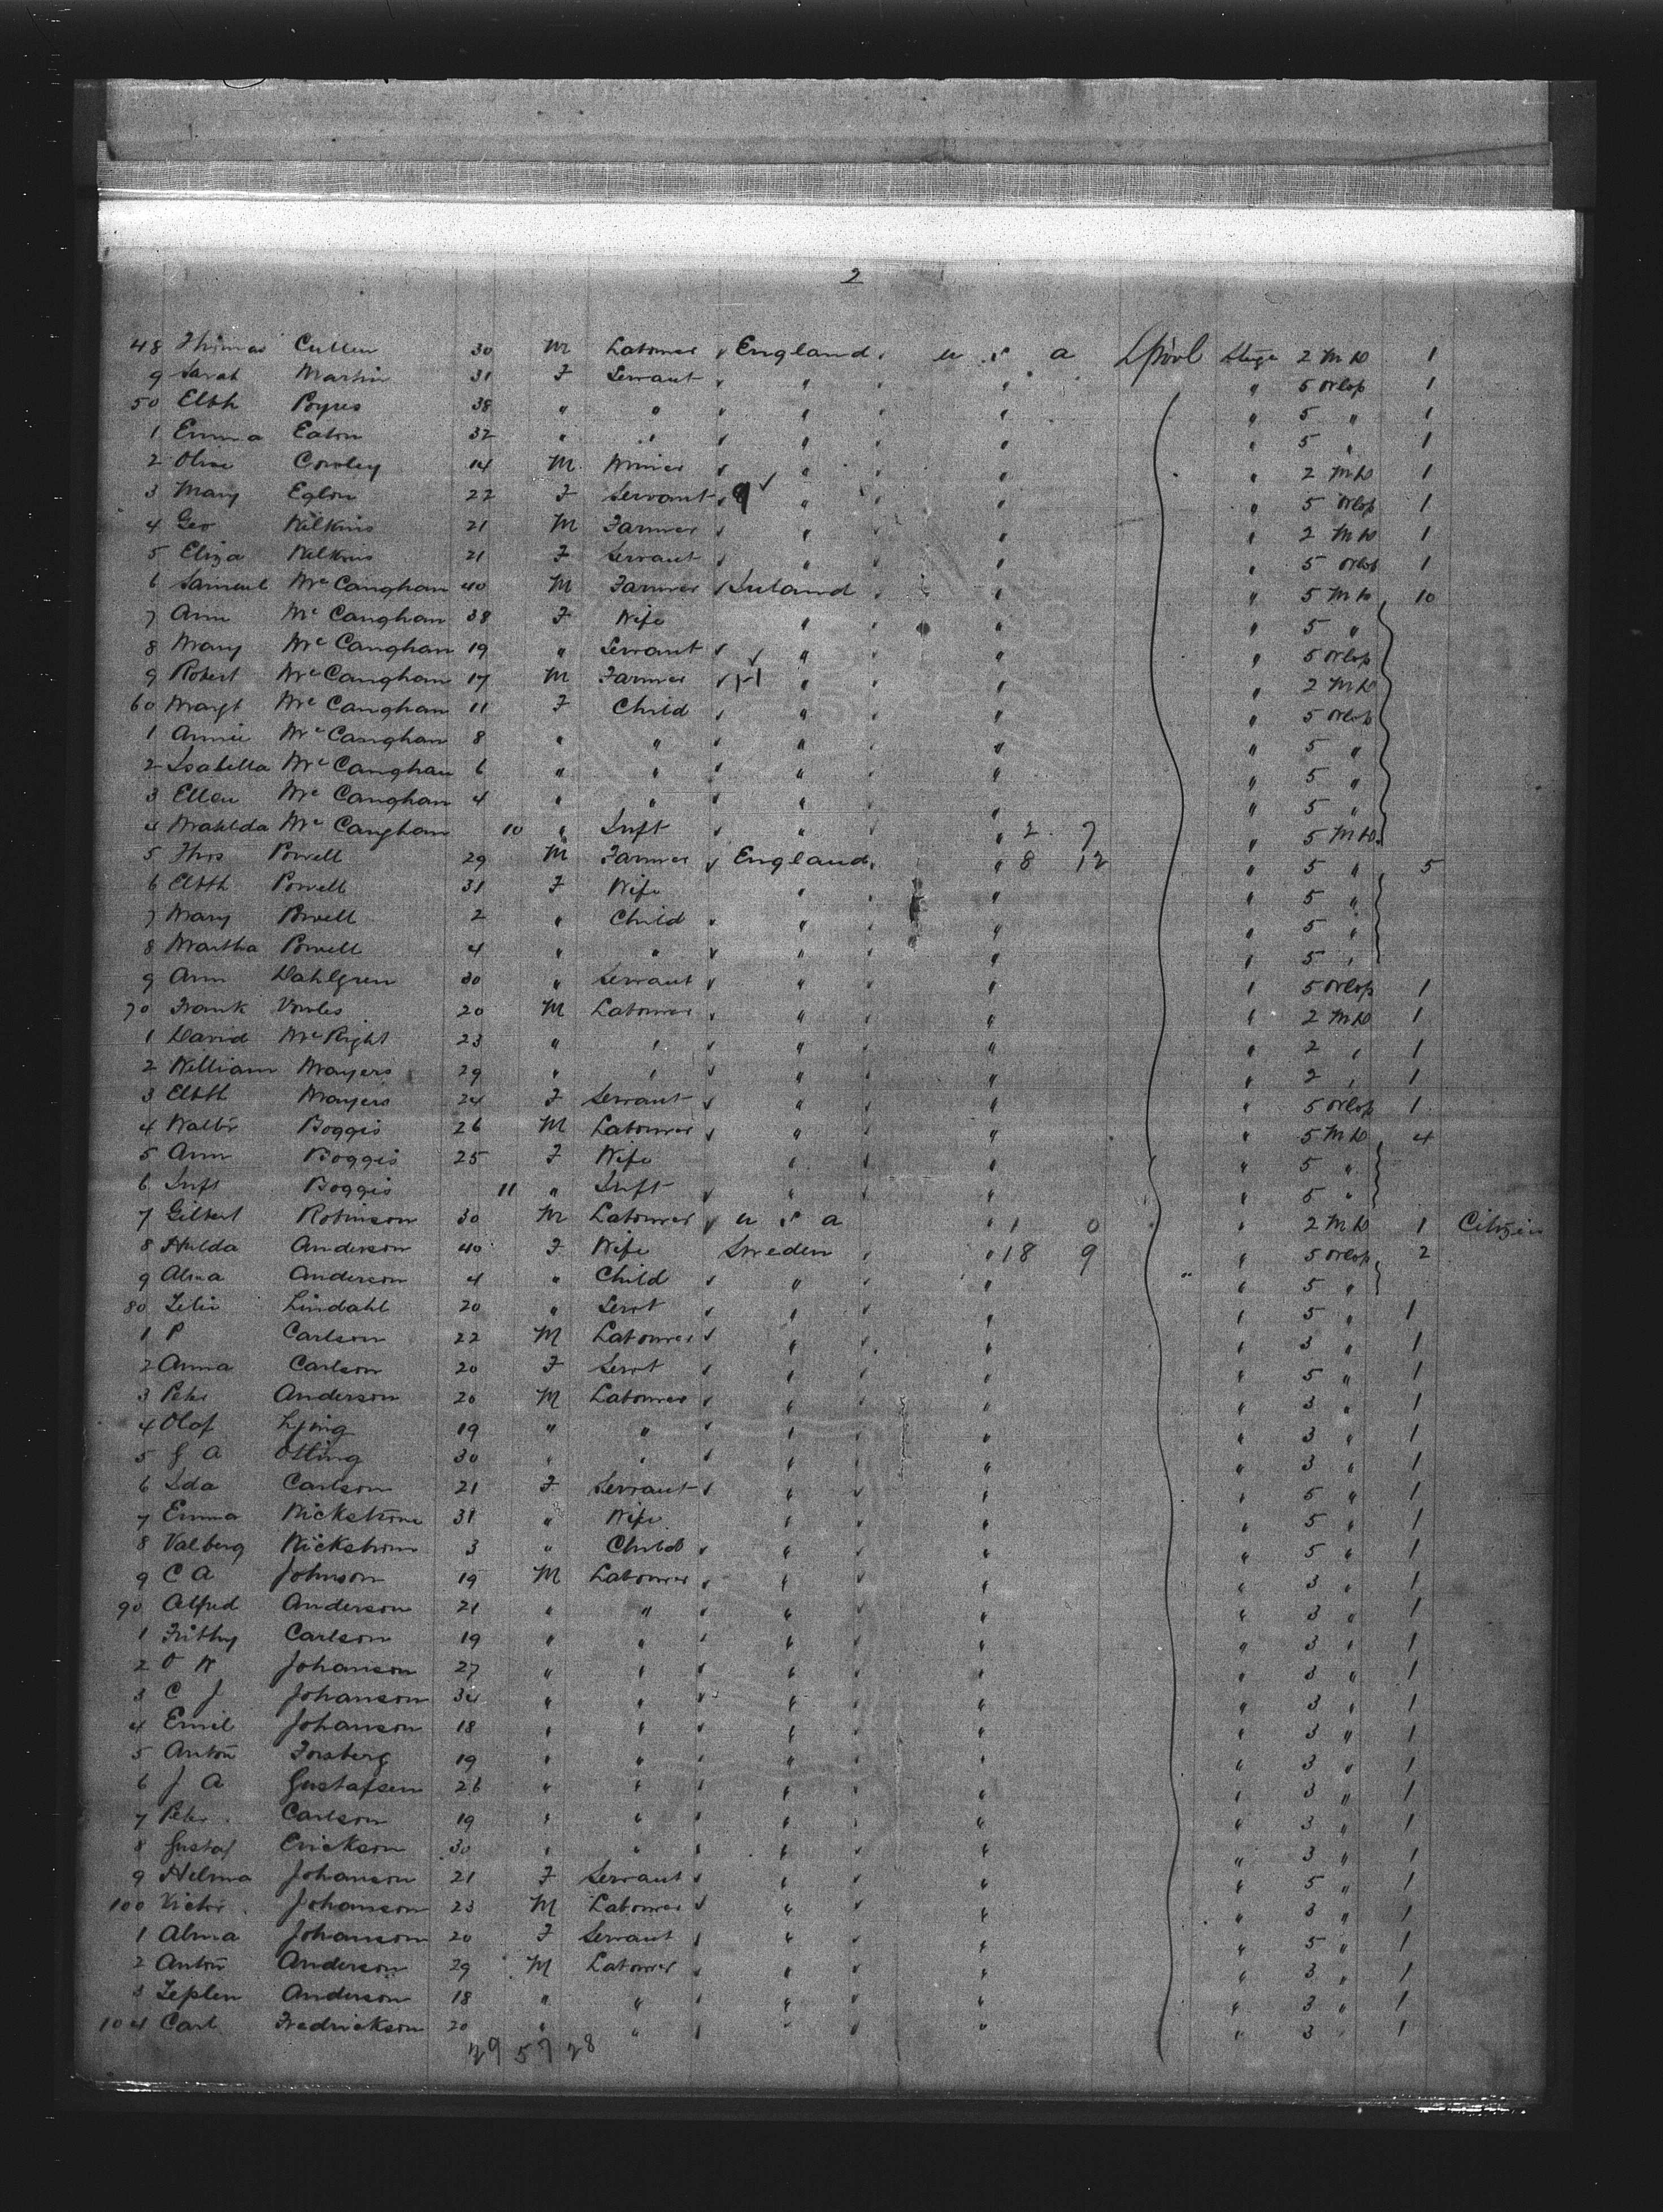 2
48 Thomas Cullen 30 M Labourer England U S A Lpool Stage 2 M D 1
9 Sarah Martin 31 F Servant " " " 5 Orlop 1
50 Elbth 38 " " " " " 5 " 1
1 Emma Eaton 32 " " " " " 5 " 1
2 Olive Cowley 14 M " " " 2 M D 1
3 Mary Eglon 22 F Servant " " " 5 Orlop 1
4 Geo Wilkins 21 M Farmer " " " 2 M D 1
5 Eliza Wilkins 21 F Servant " " " 5 Orlop 1
6 Samuel McCanghan 40 M Farmer Ireland " " 5 M D 10
7 Ann McCanghan 38 F Wife " " " 5 "
8 Mary McCanghan 19 " Servant " " " 5 Orlop
9 Robert McCanghan 17 M Farmer " " " 2 M D
60 Margt McCanghan 11 F Child " " " 5 Orlop
1 Annie McCanghan 8 " " " " " 5 "
2 Isabella McCanghan 6 " " " " " 5 "
3 Ellen McCanghan 4 " " " " " 5 "
4 Matilda McCanghan 10 " Inft " " 2 7 " 5 M D
5 Thos Powell 29 M Farmer England " 8 12 " 5 " 5
6 Elbth Powell 31 F Wife " " " 5 "
7 Mary Powell 2 " Child " " " 5 "
8 Martha Powell 4 " " " " " 5 "
9 Ann Dahlgren 30 " Servant " " " 5 Orlop 1
70 Frank Vowles 20 M Labourer " " " 2 M D 1
1 David McRight 23 " " " " " 2 " 1
2 William Mayers 29 " " " " " 2 " 1
3 Elbth Mayers 24 F Servant " " " 5 Orlop 1
4 Walter Boggis 26 M Labourer " " " 5 M D 4
5 Ann Boggis 25 F Wife " " " 5 "
6 Inft Boggis 11 " Inft " " " 5 "
7 Gilbert Robinson 30 M Labourer U S A " 1 0 " 2 M D 1 Citizen
8 Hulda Anderson 40 F Wife Sweden " 18 9 " 5 Orlop 2
9 Alma Anderson 4 " Child " " " 5 "
80 Lindahl 20 " Servt " " " 5 " 1
1 P Carlson 22 M Labourer " " " 3 " 1
2 Anna Carlson 20 F Servt " " " 5 " 1
3 Peter Anderson 20 M Labourer " " " 3 " 1
4 Olof Ljing 19 " " " " " 3 " 1
5 G A Otting 30 " " " " " 3 " 1
6 Ida Carlson 21 F Servant " " " 5 " 1
7 Emma Wickstrom 31 " Wife " " " 5 " 1
8 Valberg Wickstrom 3 " Child " " " 5 " 1
9 C A Johnson 19 M Labourer " " " 3 " 1
90 Alfred Anderson 21 " " " " " 3 " 1
1 Frithy Carlson 19 " " " " " 3 " 1
2 O W Johanson 27 " " " " " 3 " 1
3 C J Johanson 34 " " " " " 3 " 1
4 Emil Johanson 18 " " " " " 3 " 1
5 Anton Forsberg 19 " " " " " 3 " 1
6 J A Gustafsen 26 " " " " " 3 " 1
7 Peter Carlson 19 " " " " " 3 " 1
8 Gustaf Erickson 30 " " " " " 3 " 1
9 Helma Johanson 21 F Servant " " " 5 " 1
100 Victor Johanson 23 M Labourer " " " 3 " 1
1 Alma Johanson 20 F Servant " " " 5 " 1
2 Anton Anderson 29 M Labourer " " " 3 " 1
3 Zeplen Anderson 18 " " " " " 3 " 1
104 Carl Fredrickson 20 " " " " " 3 " 1
29 57 28